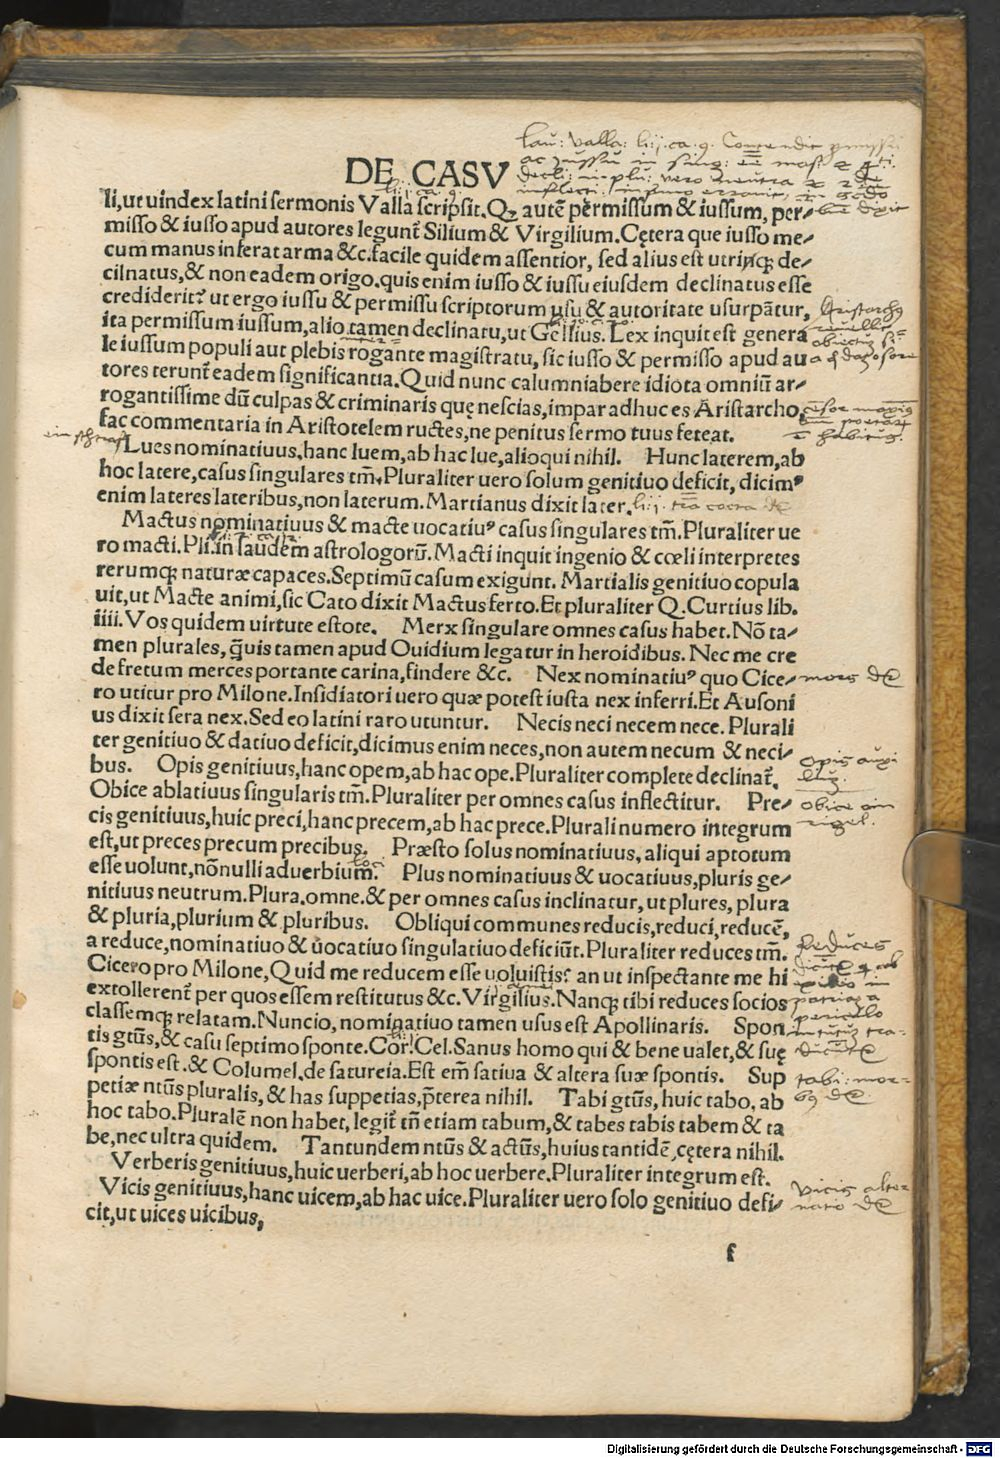 DE CASV
li, ut uindex latini sermonis Valla scripsit. Qꝫ autē permissum & iussum, per⸗
misso & iusso apud autores legunt̄ Silium & Virgilium. Cętera que iusso me⸗
cum manus inferat arma &c. facile quidem assentior, sed alius est utriusqꝫ de⸗
clinatus, & non eadem origo. quis enim iusso & iussu eiusdem declinatus esse
crediderit? ut ergo iussu & permissu scriptorum usu & autoritate usurpātur,
ita permissum iussum, alio tamen declinatu, ut Gellius. Lex inquit est genera
le iussum populi aut plebis rogante magistratu, sic iusso & permisso apud au
tores terunt̄ eadem significantia. Quid nunc calumniabere idiota omniū ar⸗
rogantissime dū culpas & criminaris quę nescias, impar adhuc es Aristarcho,
fac commentaria in Aristotelem ructes, ne penitus sermo tuus feteat.
Lues nominatiuus, hanc luem, ab hac lue, alioqui nihil. Hunc laterem, ab
hoc latere, casus singulares tm̄. Pluraliter uero solum genitiuo deficit, dicimꝰ
enim lateres lateribus, non laterum. Martianus dixit later.
Mactus nominatiuus & macte uocatiuꝰ casus singulares tm̄. Pluraliter ue
ro macti. Pli. in laudem astrologorū. Macti inquit ingenio & cœli interpretes
rerumqꝫ naturæ capaces. Septimū casum exigunt. Martialis genitiuo copula
uit, ut Macte animi, sic Cato dixit Mactus ferto. Et pluraliter Q. Curtius lib.
iiii. Vos quidem uirtute estote. Merx singulare omnes casus habet. Nō ta⸗
men plurales, q̄uis tamen apud Ouidium legatur in heroidibus. Nec me cre
de fretum merces portante carina, findere &c. Nex nominatiuꝰ quo Cice⸗
ro utitur pro Milone. Insidiatori uero quæ potest iusta nex inferri. Et Ausoni
us dixit sera nex. Sed eo latini raro utuntur. Necis neci necem nece. Plurali
ter genitiuo & datiuo deficit, dicimus enim neces, non autem necum & neci⸗
bus. Opis genitiuus, hanc opem, ab hac ope. Pluraliter complete declinat̄.
Obice ablatiuus singularis tm̄. Pluraliter per omnes casus inflectitur. Pre⸗
cis genitiuus, huic preci, hanc precem, ab hac prece. Plurali numero integrum
est, ut preces precum precibus. Præsto solus nominatiuus, aliqui aptotum
esse uolunt, nōnulli aduerbium. Plus nominatiuus & uocatiuus, pluris ge⸗
nitiuus neutrum. Plura. omne. & per omnes casus inclinatur, ut plures, plura
& pluria, plurium & pluribus. Obliqui communes reducis, reduci, reducē,
a reduce, nominatiuo & uocatiuo singulatiuo deficiūt. Pluraliter reduces tm̄.
Cicero pro Milone, Quid me reducem esse uoluistis? an ut inspectante me hi
extollerent̄ per quos essem restitutus &c. Virgilius. Nanqꝫ tibi reduces socios
classemqꝫ relatam. Nuncio, nominatiuo tamen usus est Apollinaris. Spon
tis gtūs, & casu septimo sponte. Cor. Cel. Sanus homo qui & bene ualet, & suę
spontis est. & Columel. de satureia. Est em̄ satiua & altera suæ spontis. Sup
petiæ ntūs pluralis, & has suppetias, p̄terea nihil. Tabi gtūs, huic tabo, ab
hoc tabo. Pluralē non habet, legit̄ tn̄ etiam tabum, & tabes tabis tabem & ta
be, nec ultra quidem. Tantundem ntūs & actūs, huius tantidē, cętera nihil.
Verberis genitiuus, huic uerberi, ab hoc uerbere. Pluraliter integrum est.
Vicis genitiuus, hanc uicem, ab hac uice. Pluraliter uero solo genitiuo defi⸗
cit, ut uices uicibus,
f
Digitalisierung gefördert durch die Deutsche Forschungsgemeinschaft - DFG